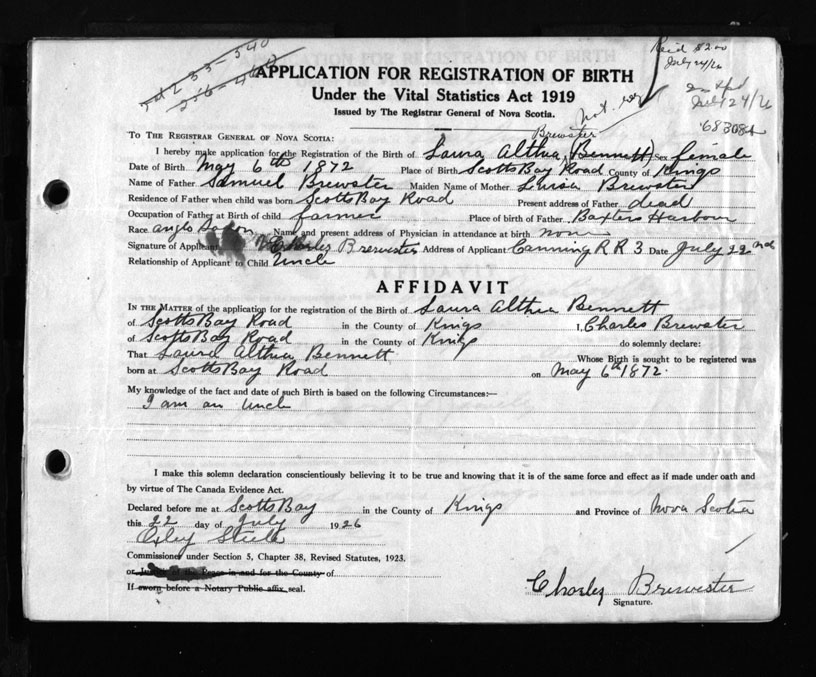 Paid $2.00
July 24/26
July 24/26
68308
APPLICATION FOR REGISTRATION OF BIRTH
Under the Vital Statistics Act 1919
Issued by The Registrar General of Nova Scotia.
Not reg
To The Registrar General of Nova Scotia:
Brewster
I hereby make application for the Registration of the Birth of Laura Althea (Bennett) Sex female
Date of Birth May 6th 1872 Place of Birth Scotts Bay Road County of Kings
Name of Father Samuel Brewster Maiden Name of Mother Louisa Brewster
Residence of Father when child was born Scotts Bay Road Present address of Father dead
Occupation of Father at Birth of child farmer Place of birth of Father Baxters Harbour
Race anglo Saxon Name and present address of Physician in attendance at birth none
Signature of Applicant Charles Brewster Address of Applicant Canning R R 3 Date July 22nd
Relationship of Applicant to Child Uncle
AFFIDAVIT
In the Matter of the application for the registration of the Birth of Laura Althea Bennett
of Scotts Bay Road in the County of Kings I, Charles Brewster
of Scotts Bay Road in the County of Kings do solemnly declare:
That Laura Althea Bennett Whose Birth is sought to be registered was
born at Scotts Bay Road on May 6th 1872.
My knowledge of the fact and date of such Birth is based on the following Circumstances:—
I am an Uncle
I make this solemn declaration conscientiously believing it to be true and knowing that it is of the same force and effect as if made under oath and
by virtue of The Canada Evidence Act.
Declared before me at Scotts Bay in the County of Kings and Province of Nova Scotia
this 22 day of July 1926
Oxley Steele
Commissioner under Section 5, Chapter 38, Revised Statutes, 1923.
or Justice of the Peace in and for the County of
If sworn before a Notary Public affix seal.
Charles Brewster
Signature.